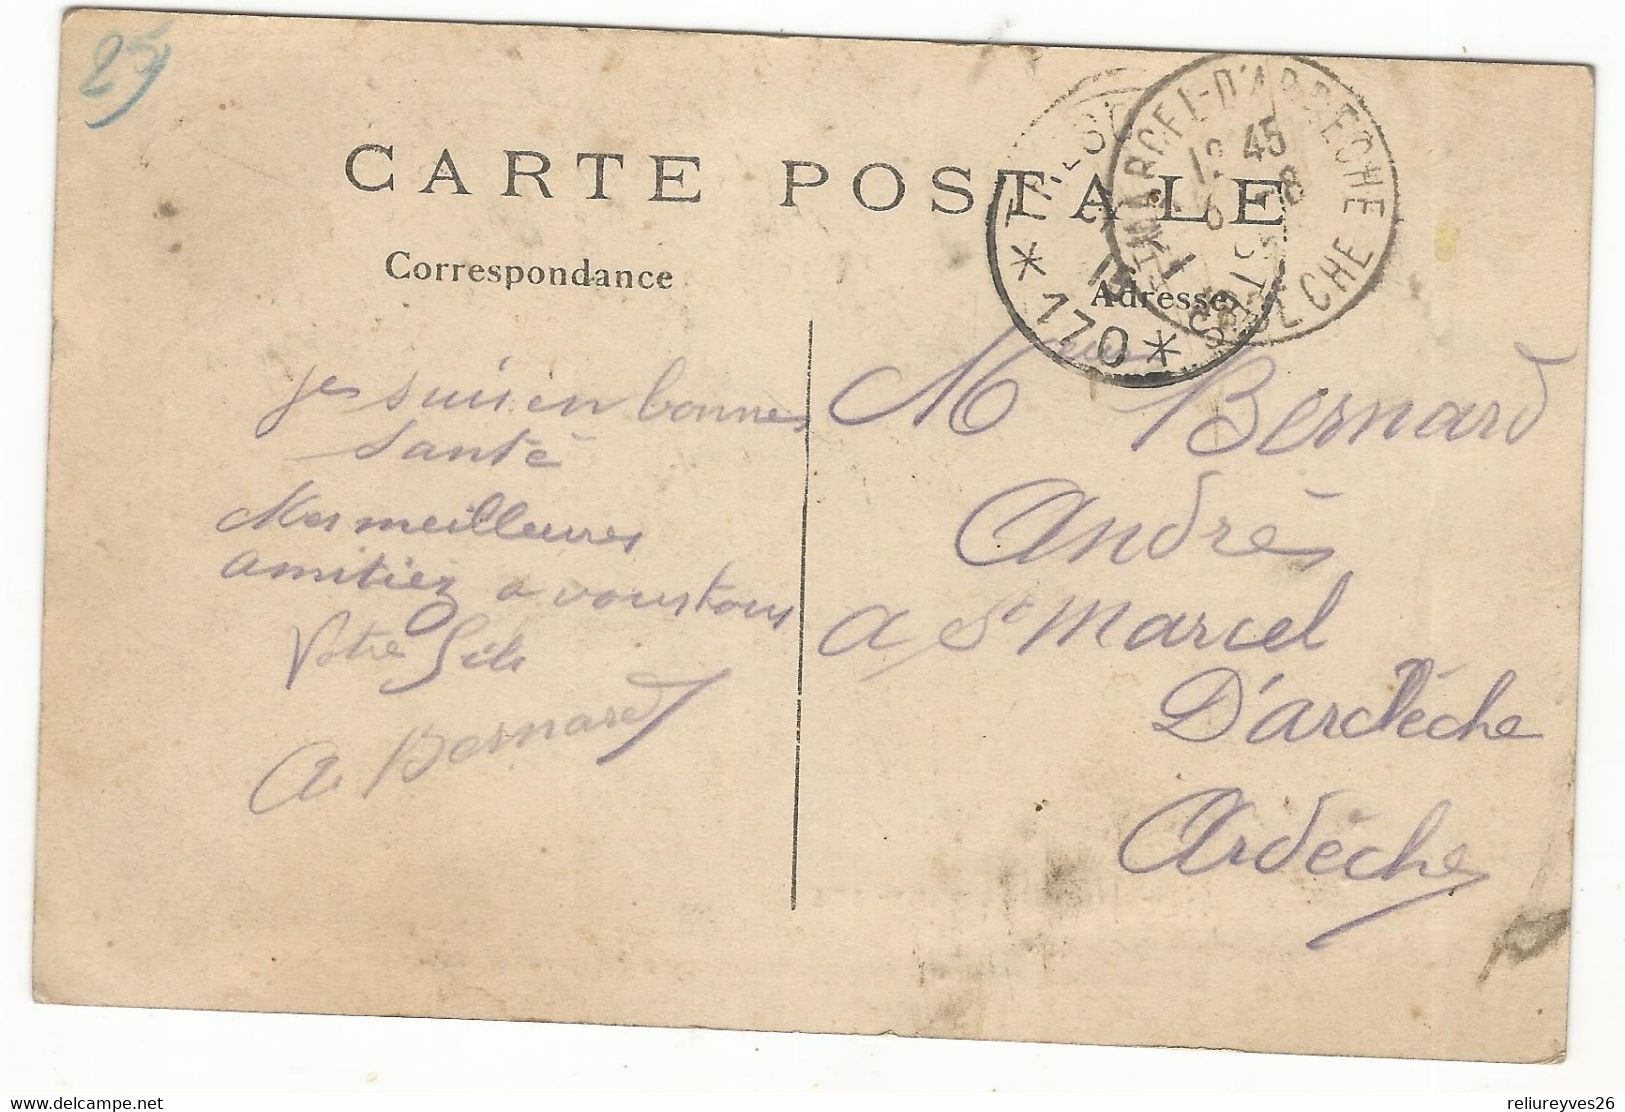 25
CARTE POSTALE
Correspondance
Adresse
ST MARCEL-D'ARDECHE
ARDECHE
45
TRESOR
POSTES
* 170 *
Je suis en bonnes
santé
Mes meilleures
amitiez a vous tous
Votre fils
A. Bernard
Bernard
Andrés
a St Marcel
D'ardéche
Ardéche
www.delcampe.net
reliureyves26